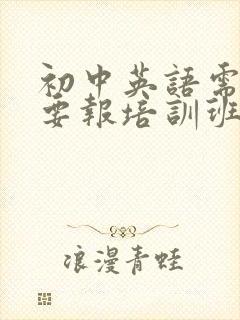 初中英語需
要報培訓班
浪漫青蛙